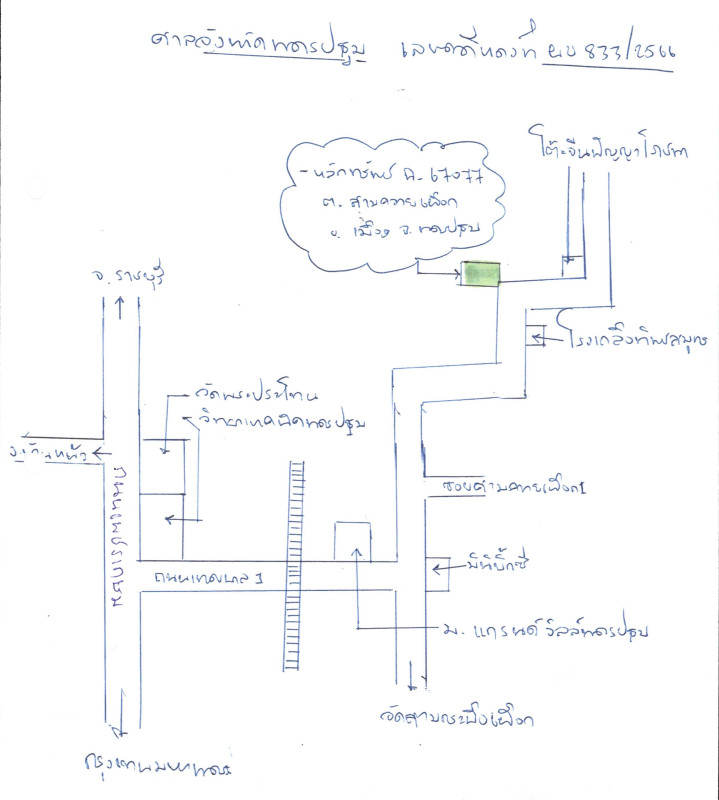 ศาลจังหวัดนครปฐม เลขคดีแดงที่ ผบ 833/2566
โต๊ะจีนปัญญาโภชนา
- หลักทรัพย์ ฉ. 67077
ต. สามควายเผือก
อ. เมือง จ. นครปฐม
จ. ราชบุรี
โรงกลึงทิพย์สมุทร
วัดพระประโทน
วิทยาเทคนิคนครปฐม
ถนนเพชรเกษม
ซอยสามควายเผือก 1
มินิบิ๊กซี
ถนนเทศบาล 1
ม. แกรนด์วิลล์นครปฐม
วัดสามกระบือเผือก
กรุงเทพมหานคร